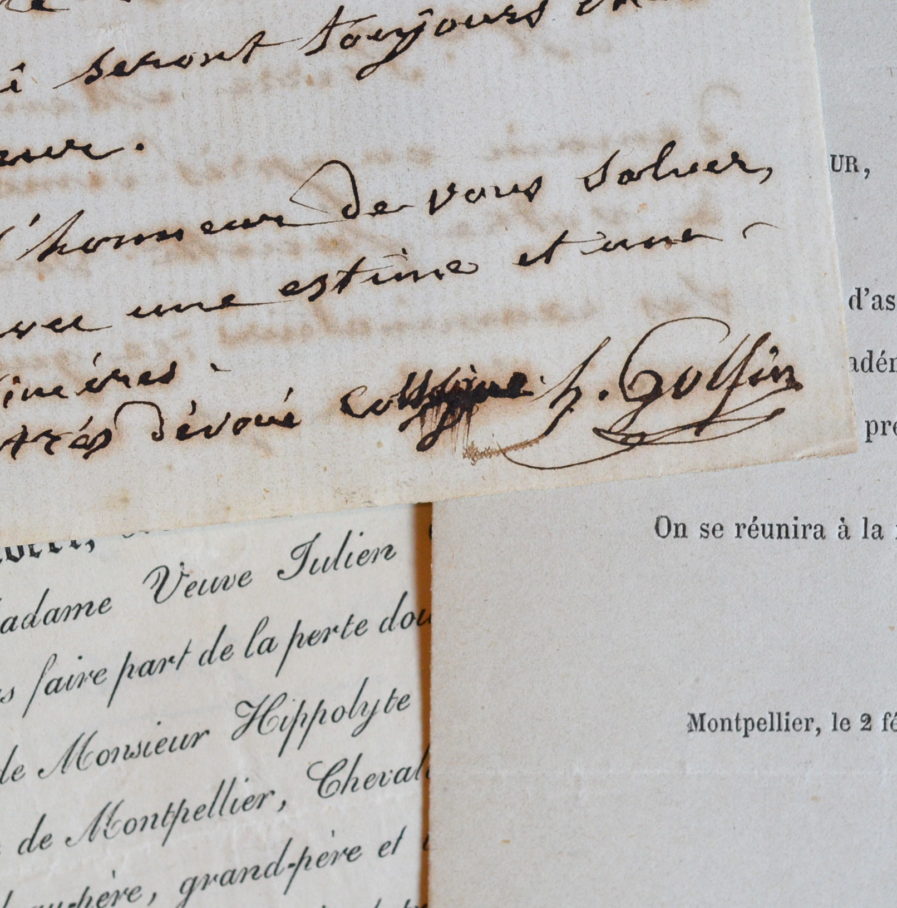 seront toujours
l'honneur de vous saluer,
avec une estime et une
sincères.
très dévoué Collègue. h. Gollfin
UR,
d'as
adém
pre
On se réunira à la
Montpellier, le 2 fé
adame Veuve Julien
s faire part de la perte dou
de Monsieur Hippolyte
de Montpellier, Cheval
beau-père, grand-père et